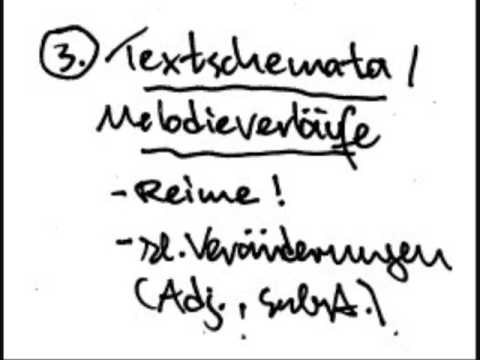 3. Textschemata /
Melodieverläufe
- Reime!
- kl. Veränderungen
(Adj., Subst.)